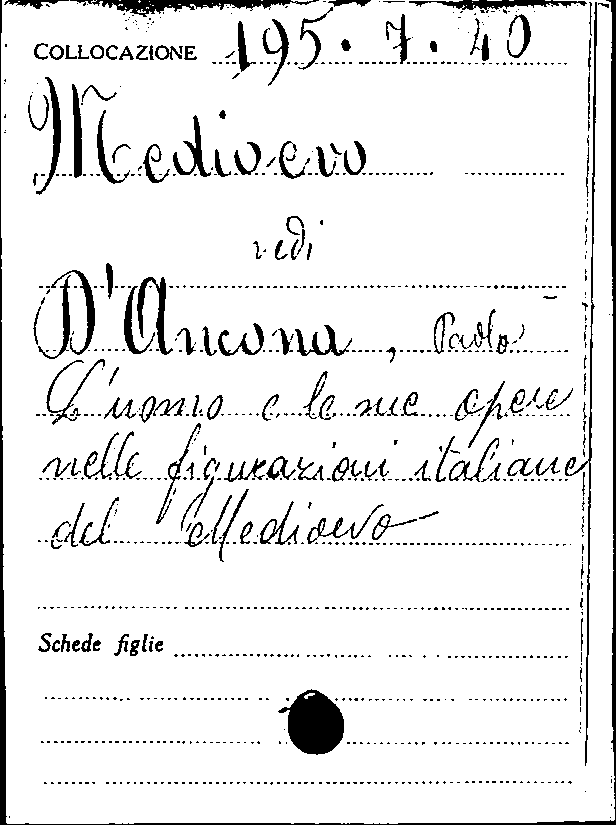 COLLOCAZIONE 195.7.40
Medioevo
vedi
D'Ancona, Paolo
L'uomo e le sue opere
nelle figurazioni italiane
del Medioevo
Schede figlie